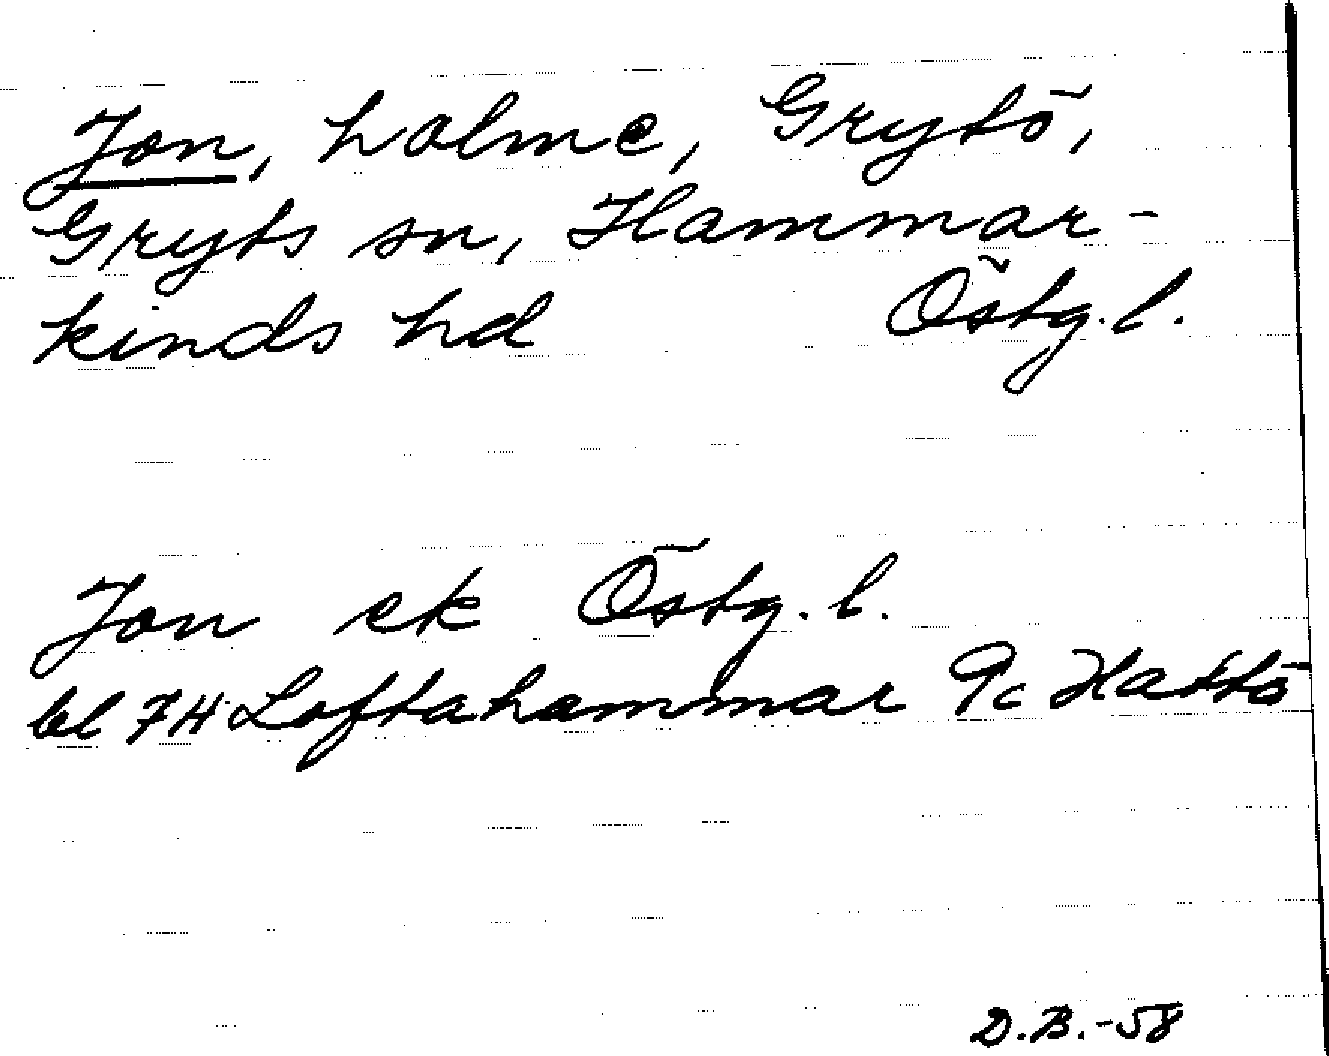 Jon, holme, Grytö,
Gryts sn, Hammar-
kinds hd Östg.l.
Jon ek Östg.l.
bl 7H Loftahammar 9c Hattö
D.B.-58